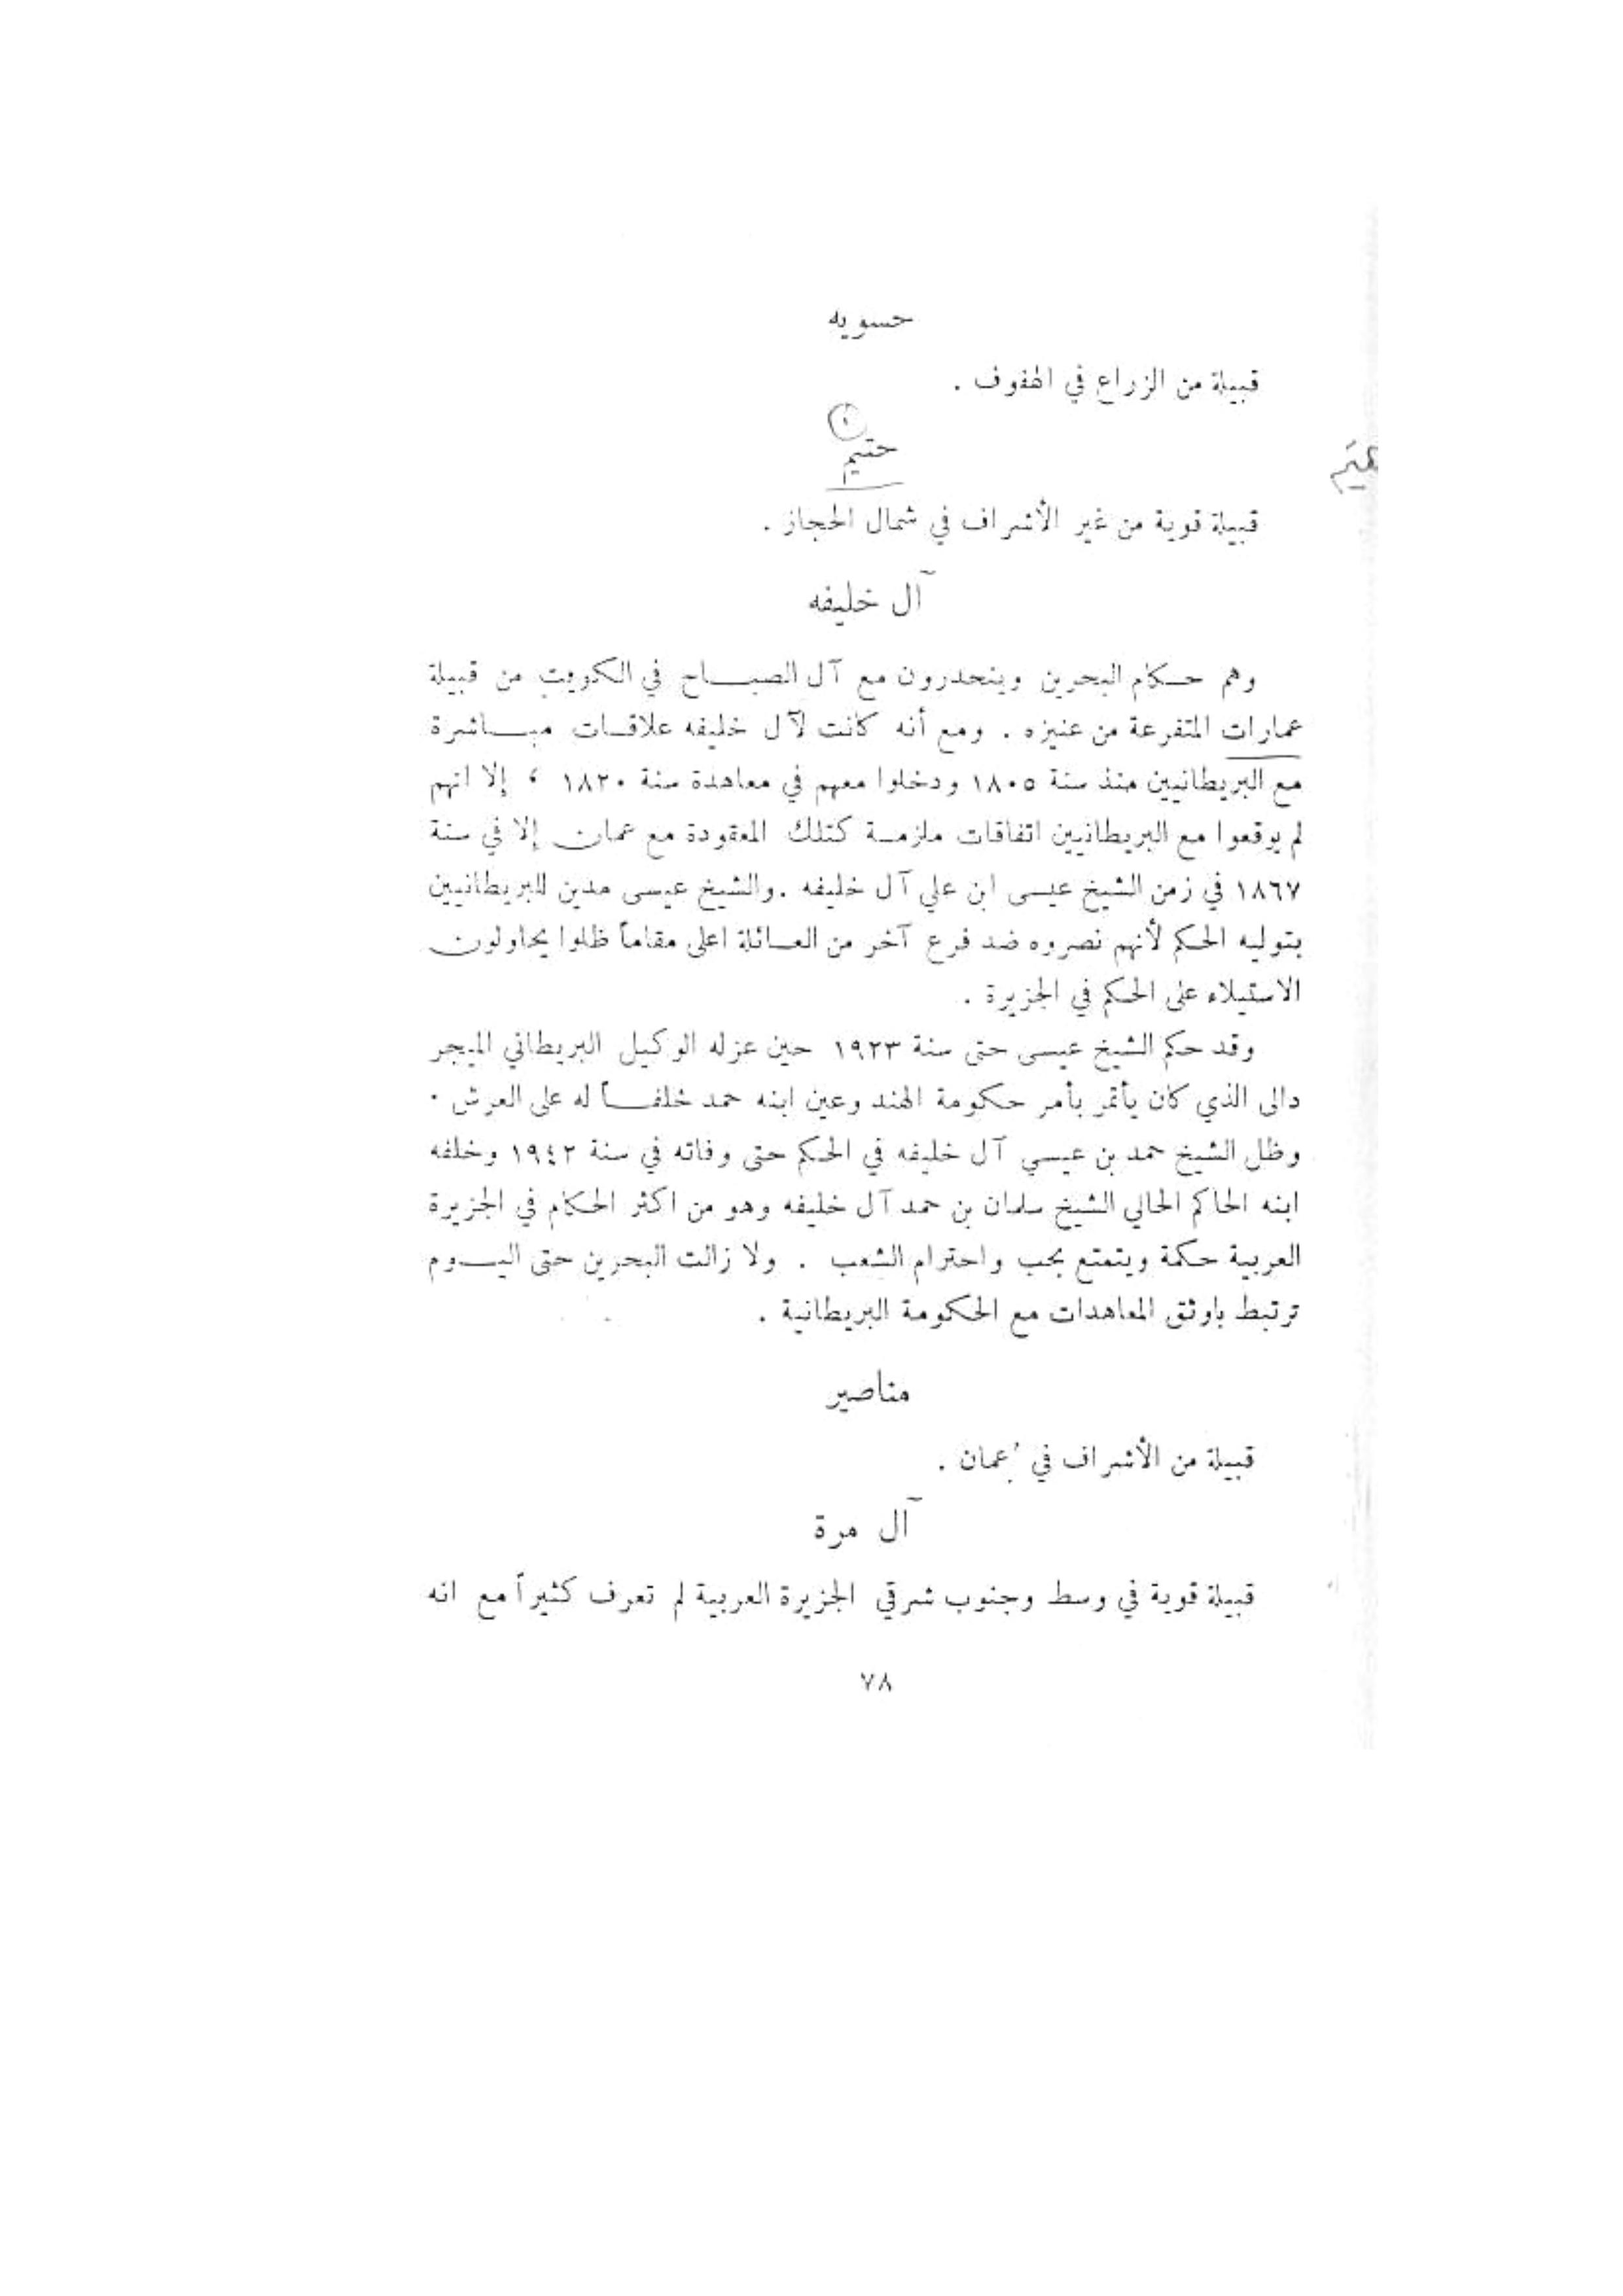 حسويه
قبيلة من الزراع في الهفوف .
حتيم
هتيم
قبيلة قوية من غير الأشراف في شمال الحجاز .
آل خليفه
وهم حكام البحرين وينحدرون مع آل الصباح في الكويت من قبيلة
عمارات المتفرعة من عنيزه . ومع أنه كانت لآل خليفه علاقات مباشرة
مع البريطانيين منذ سنة ١٨٠٥ ودخلوا معهم في معاهدة سنة ١٨٢٠ ، إلا انهم
لم يوقعوا مع البريطانيين اتفاقات ملزمة كتلك المعقودة مع عمان إلا في سنة
١٨٦٧ في زمن الشيخ عيسى ابن علي آل خليفه . والشيخ عيسى مدين للبريطانيين
بتوليه الحكم لأنهم نصروه ضد فرع آخر من العائلة اعلى مقاماً ظلوا يحاولون
الاستيلاء على الحكم في الجزيرة .
وقد حكم الشيخ عيسى حتى سنة ١٩٢٣ حين عزله الوكيل البريطاني الميجر
دالى الذي كان يأتمر بأمر حكومة الهند وعين ابنه حمد خلفاً له على العرش .
وظل الشيخ حمد بن عيسي آل خليفه في الحكم حتى وفاته في سنة ١٩٤٢ وخلفه
ابنه الحاكم الحالي الشيخ سلمان بن حمد آل خليفه وهو من اكثر الحكام في الجزيرة
العربية حكمة ويتمتع بحب واحترام الشعب . ولا زالت البحرين حتى اليوم
ترتبط باوثق المعاهدات مع الحكومة البريطانية .
مناصير
قبيلة من الأشراف في عُمان .
آل مرة
قبيلة قوية في وسط وجنوب شرقي الجزيرة العربية لم تعرف كثيراً مع انه
٧٨